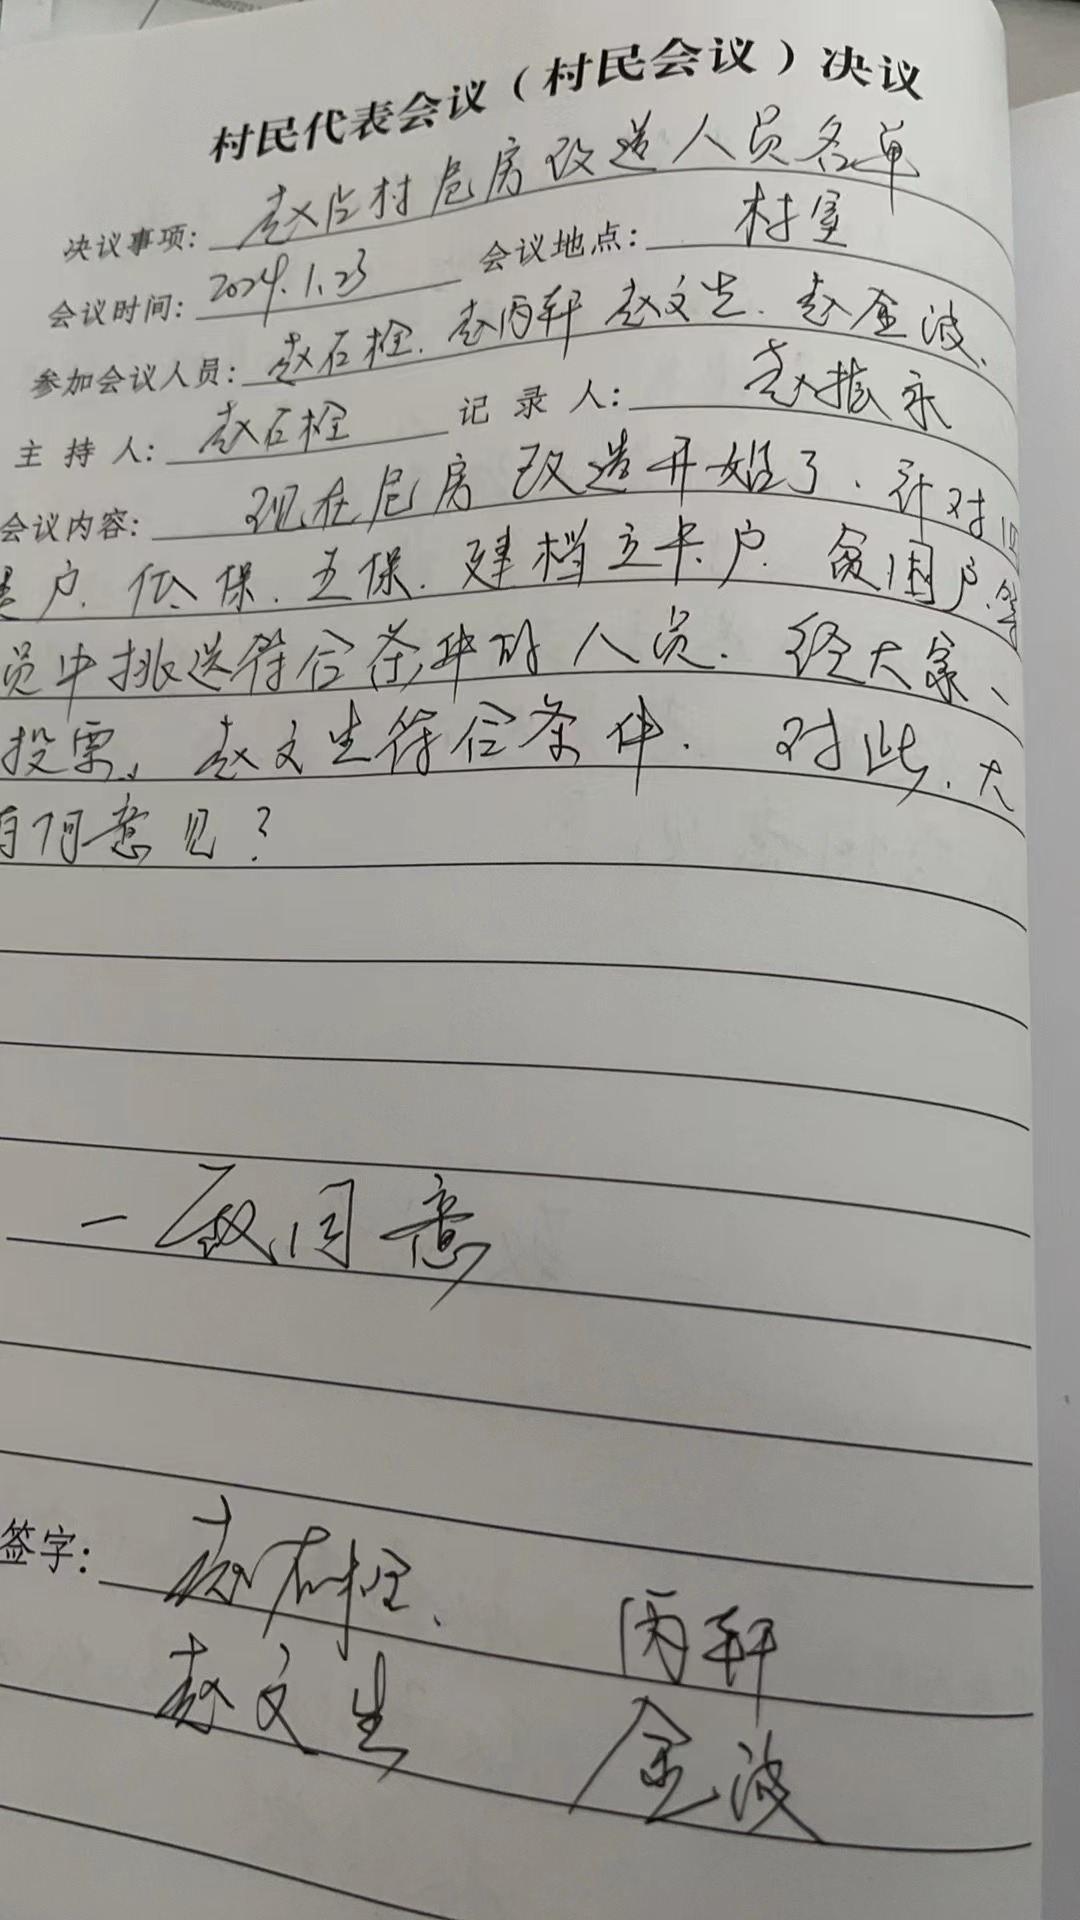 村民代表会议（村民会议）决议
决议事项：赵吕村危房改造人员名单
会议时间：2024.1.23 会议地点：村室
参加会议人员：赵石栓.赵丙轩 赵文生.赵金波、
主持人：赵石栓 记录人：赵振永
会议内容：现在危房改造开始了.针对四
类户.低保.五保.建档立卡户.贫困户.等
员中挑选符合条件的人员.经大家、
投票、赵文生符合条件.对此.大
有何意见？
一致同意
签字：赵石栓、丙轩
赵文生 金波